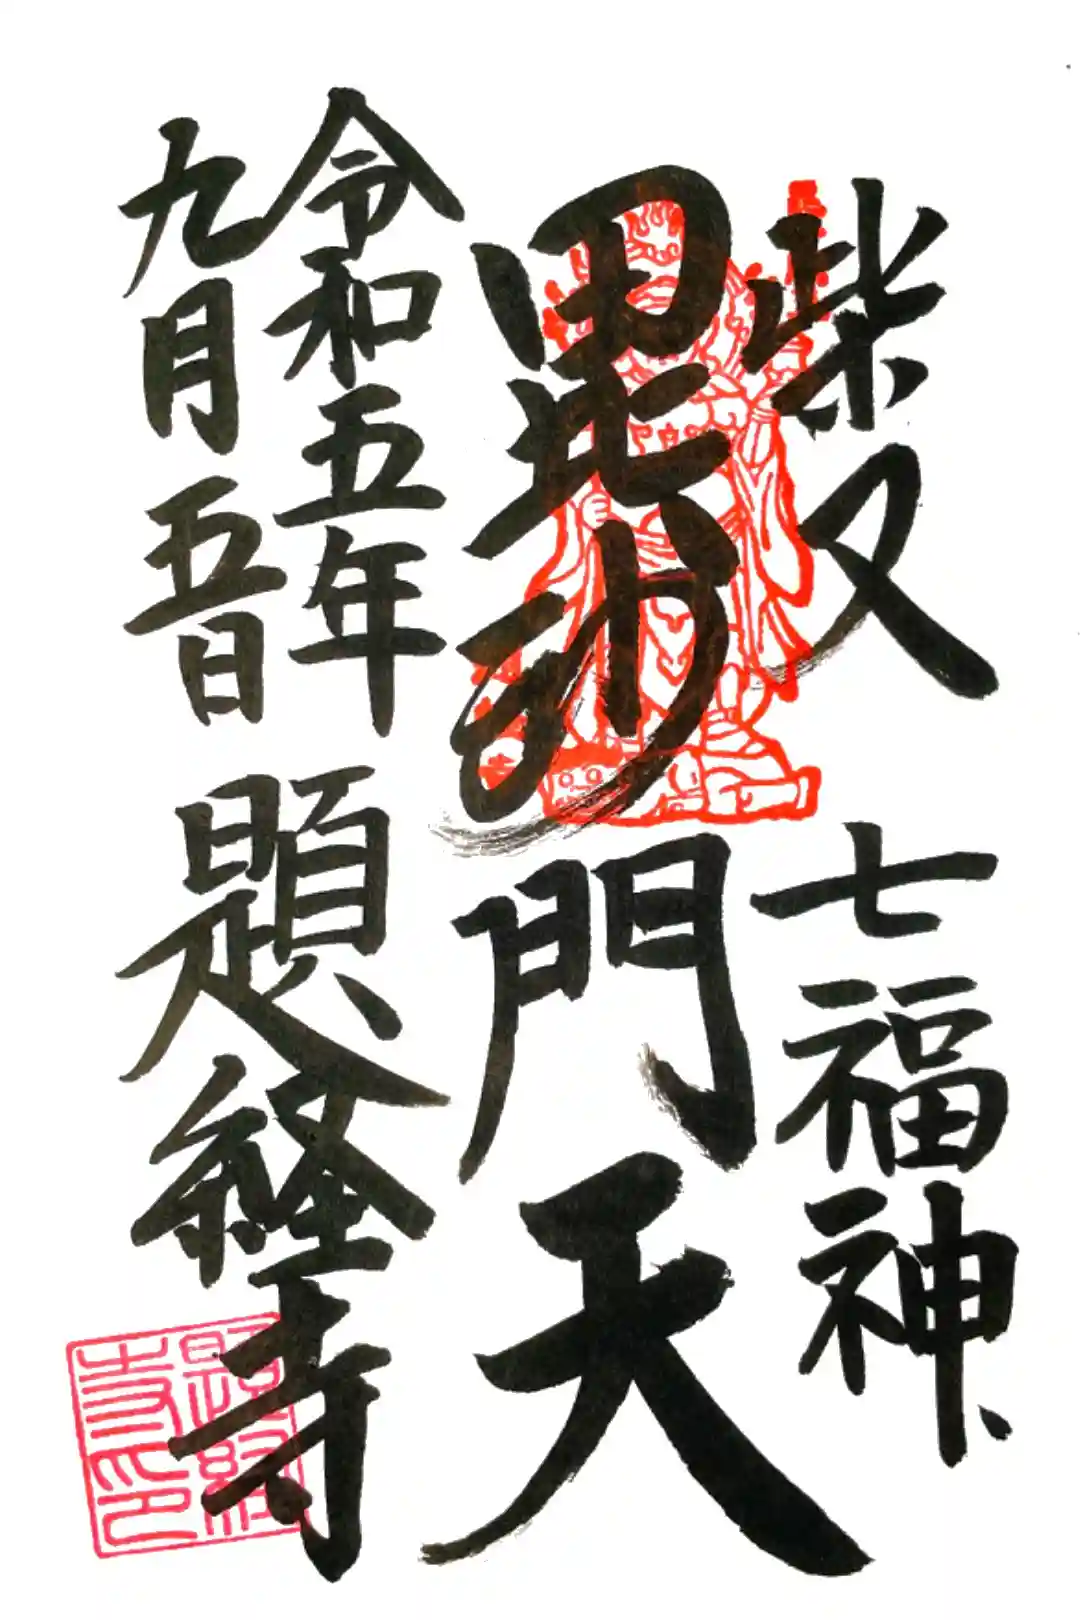 柴又 七福神、
毘沙門天
令和五年
九月五日
題経寺
題経寺印